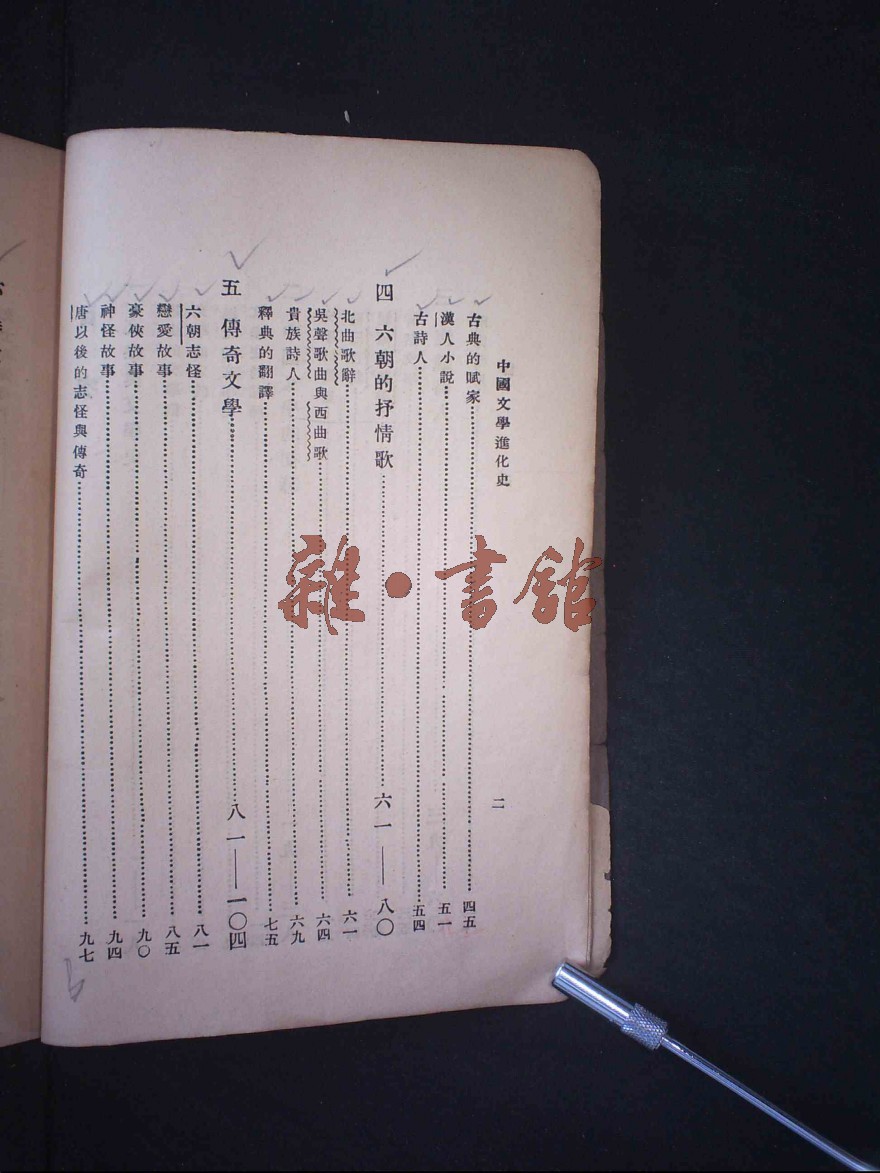 中國文學進化史
二
古典的賦家 四五
漢人小說 五一
古詩人 五四
四 六朝的抒情歌 六一——八〇
北曲歌辭 六一
吳聲歌曲與西曲歌 六四
貴族詩人 六九
釋典的翻譯 七五
五 傳奇文學 八一——一〇四
六朝志怪 八一
戀愛故事 八五
豪俠故事 九〇
神怪故事 九四
唐以後的志怪與傳奇 九七
雜·書館